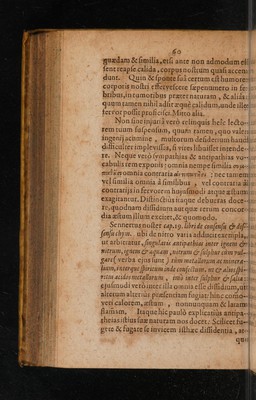 60
quædam & similia, etsi ante non admodum es-
sent reapse calida, corpus nostrum quasi accen-
dunt. Quin & sponte sua certum est humores
corporis nostri effervescere sæpenumero in fe-
bribus, in tumoribus præter naturam, & aliàs
quum tamen nihil adsit æquè calidum, unde iste
fervor possit proficisci. Mitto alia.
Non sine injuria verò relinquis heîc lecto-
rem tuum suspensum, quum tamen, quo vales
ingenij acumine, multorum desiderium haud
difficulter implevisses, si vires libuisset intende-
re. Neque verò sympathias & antipathias vo-
cabulis rem exponis: omnia nempe similia
omnia contraria : nec tamen
vel similia omnia à similibus, vel contraria à
contrarijs in fervorem hujusmodi atque æstum
exagitantur. Distinctius itaque debueras doce-
re, quodnam dissidium aut quæ rerum concor-
dia æstum illum excitet, & quomodo.
Sennertus noster cap. 19. libri de consensu & dis-
sensu chym. ubi de nitro varia addubitet in
ut arbitratur, singularis antipathia inter ignem &
nitrum, ignem & aquam, nitrum & sulphur tùm vul-
gare (verba ejus sunt) tùm metallorum ac minera-
lium, interque spiritum inde confectum, ac & alios spi-
ritus acidos metallorum, imò inter sulphur & salia
ejusmodi verò inter illa omnia esse dissidium, ut
alterum alterius præsentiam fugiat: hinc commo-
veri calorem, æstum, nonnunquam & laram
flammam. Itaque hic paulò explicatius antipa-
theias istius suæ naturam nos docet. Scilicet fu-
gere & fugare se invicem isthæc dissidentia, at-
que